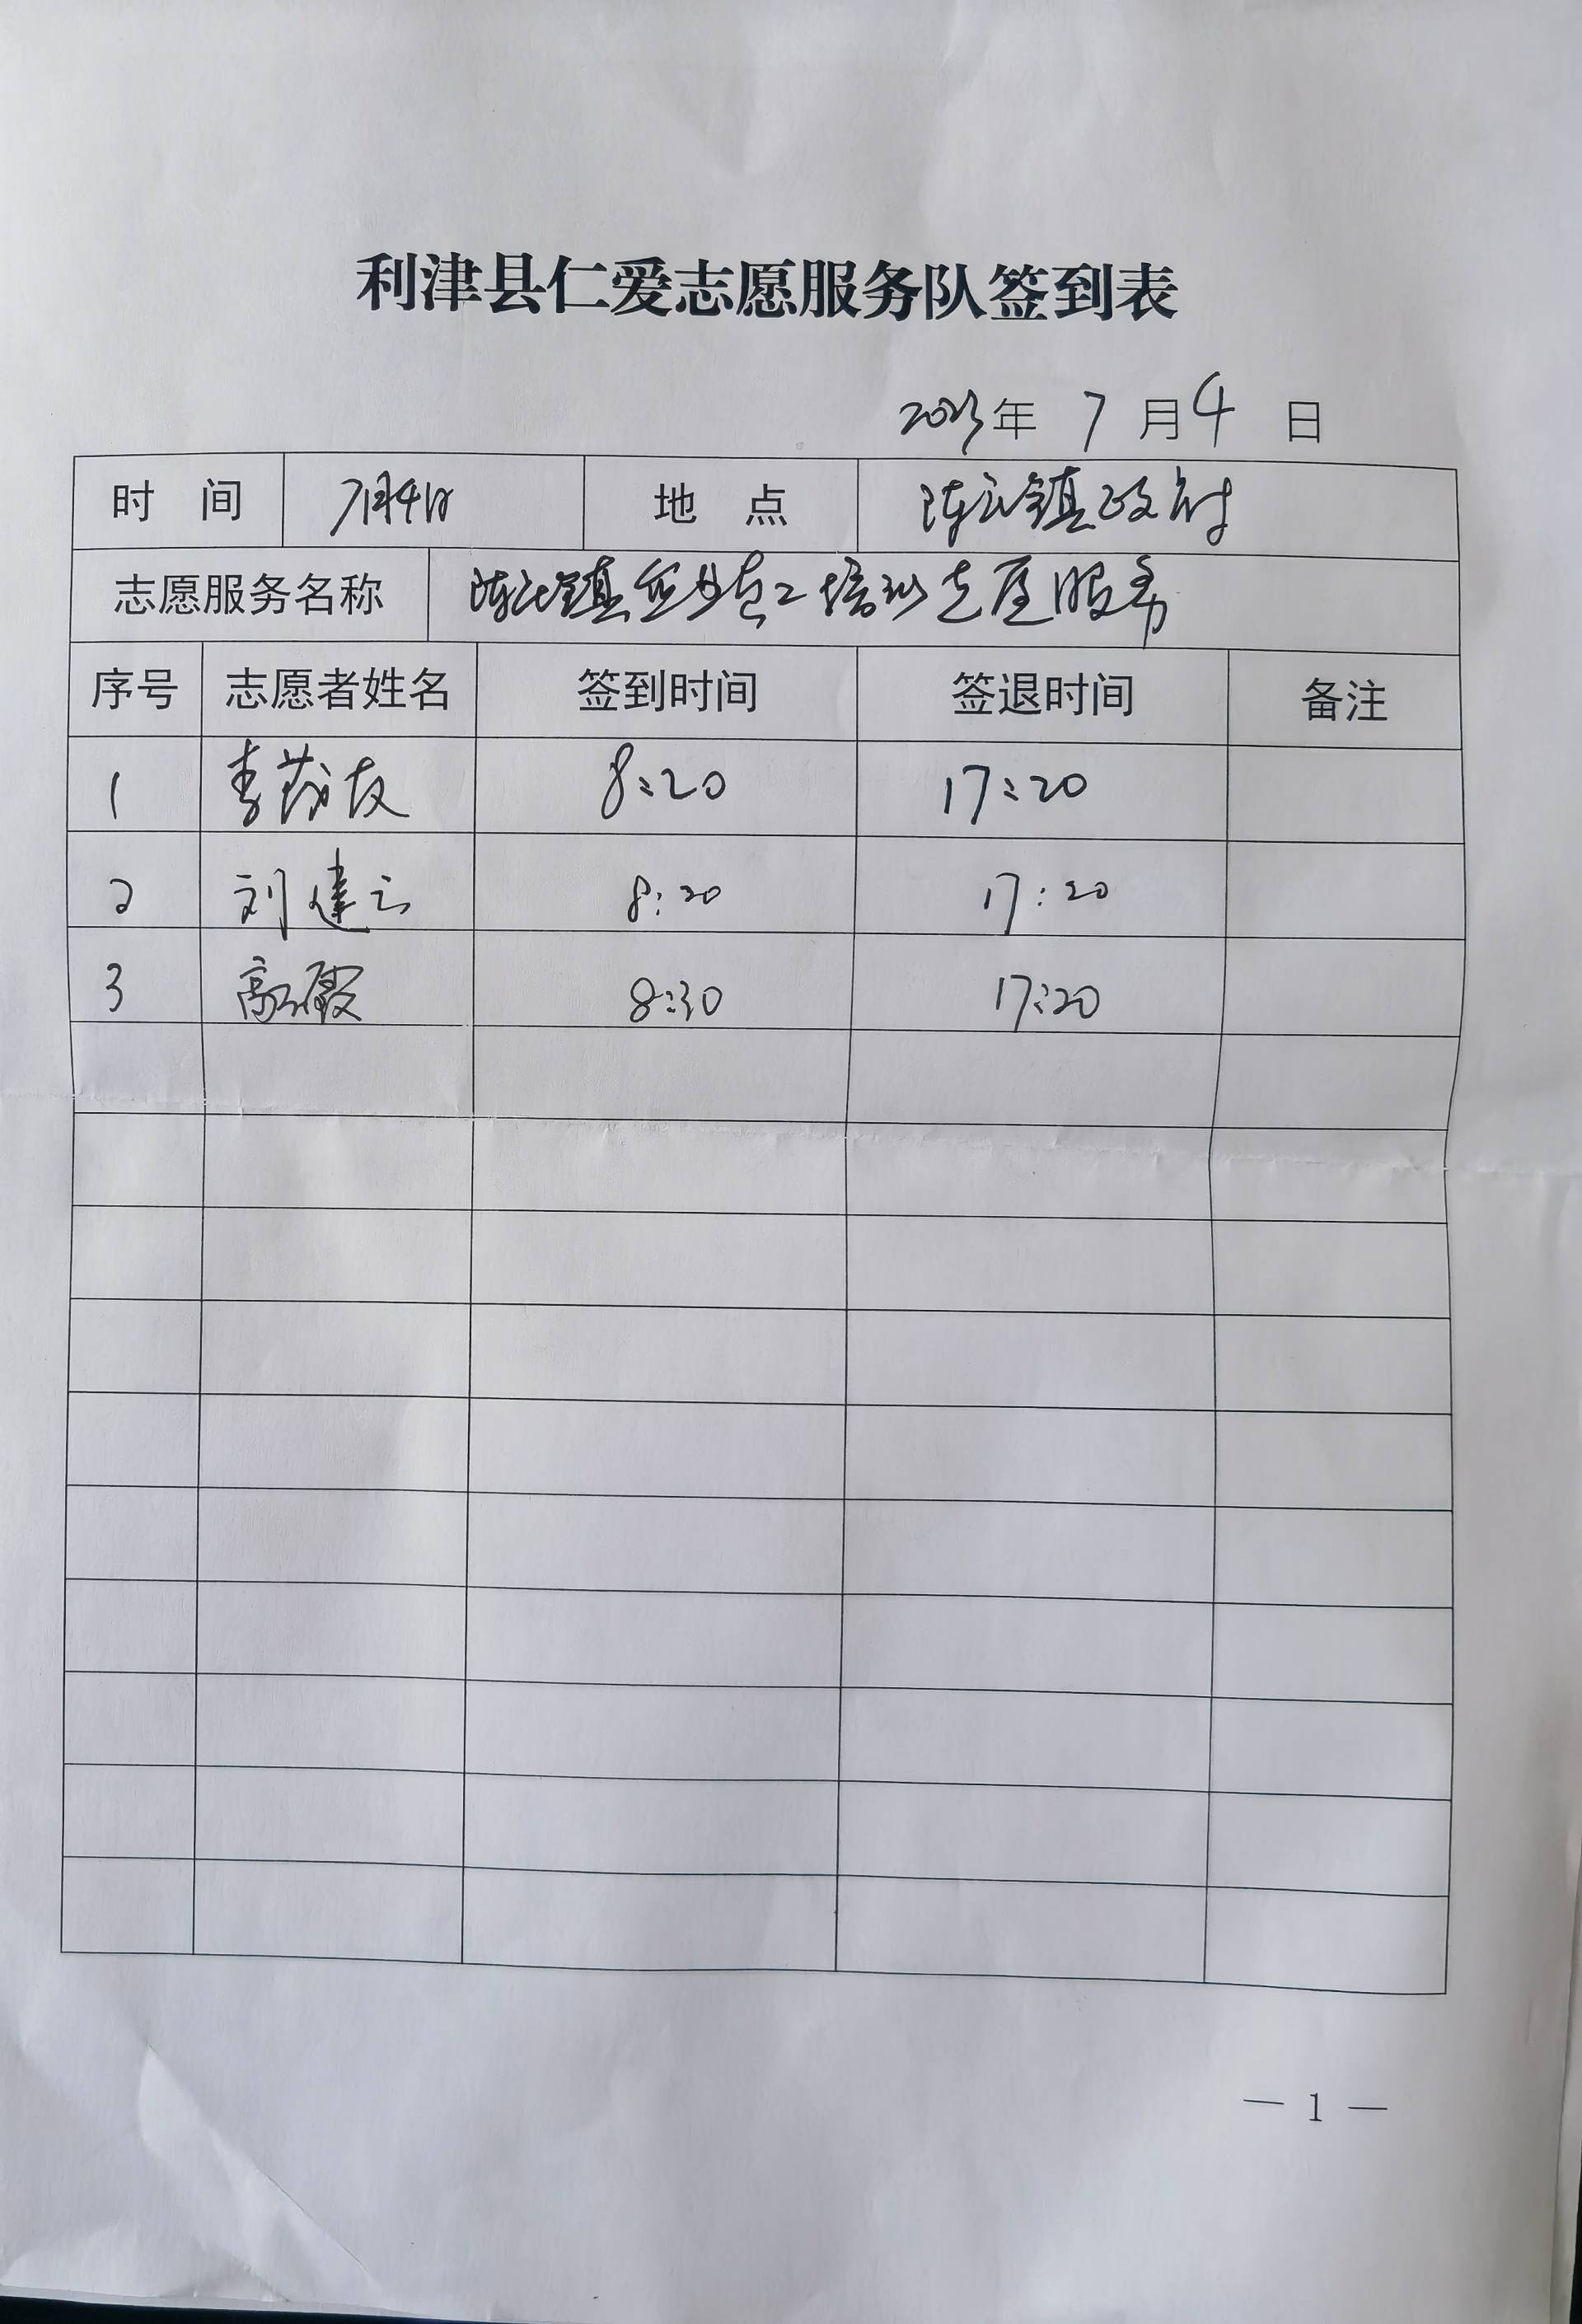 利津县仁爱志愿服务队签到表
2023年 7 月 4 日
时 间 7月4日 地 点 陈庄镇政府
志愿服务名称 陈庄镇企业员工培训志愿服务
序号 志愿者姓名 签到时间 签退时间 备注
1 李荿友 8:20 17:20
2 刘建云 8:20 17:20
3 高霞 8:30 17:20
— 1 —